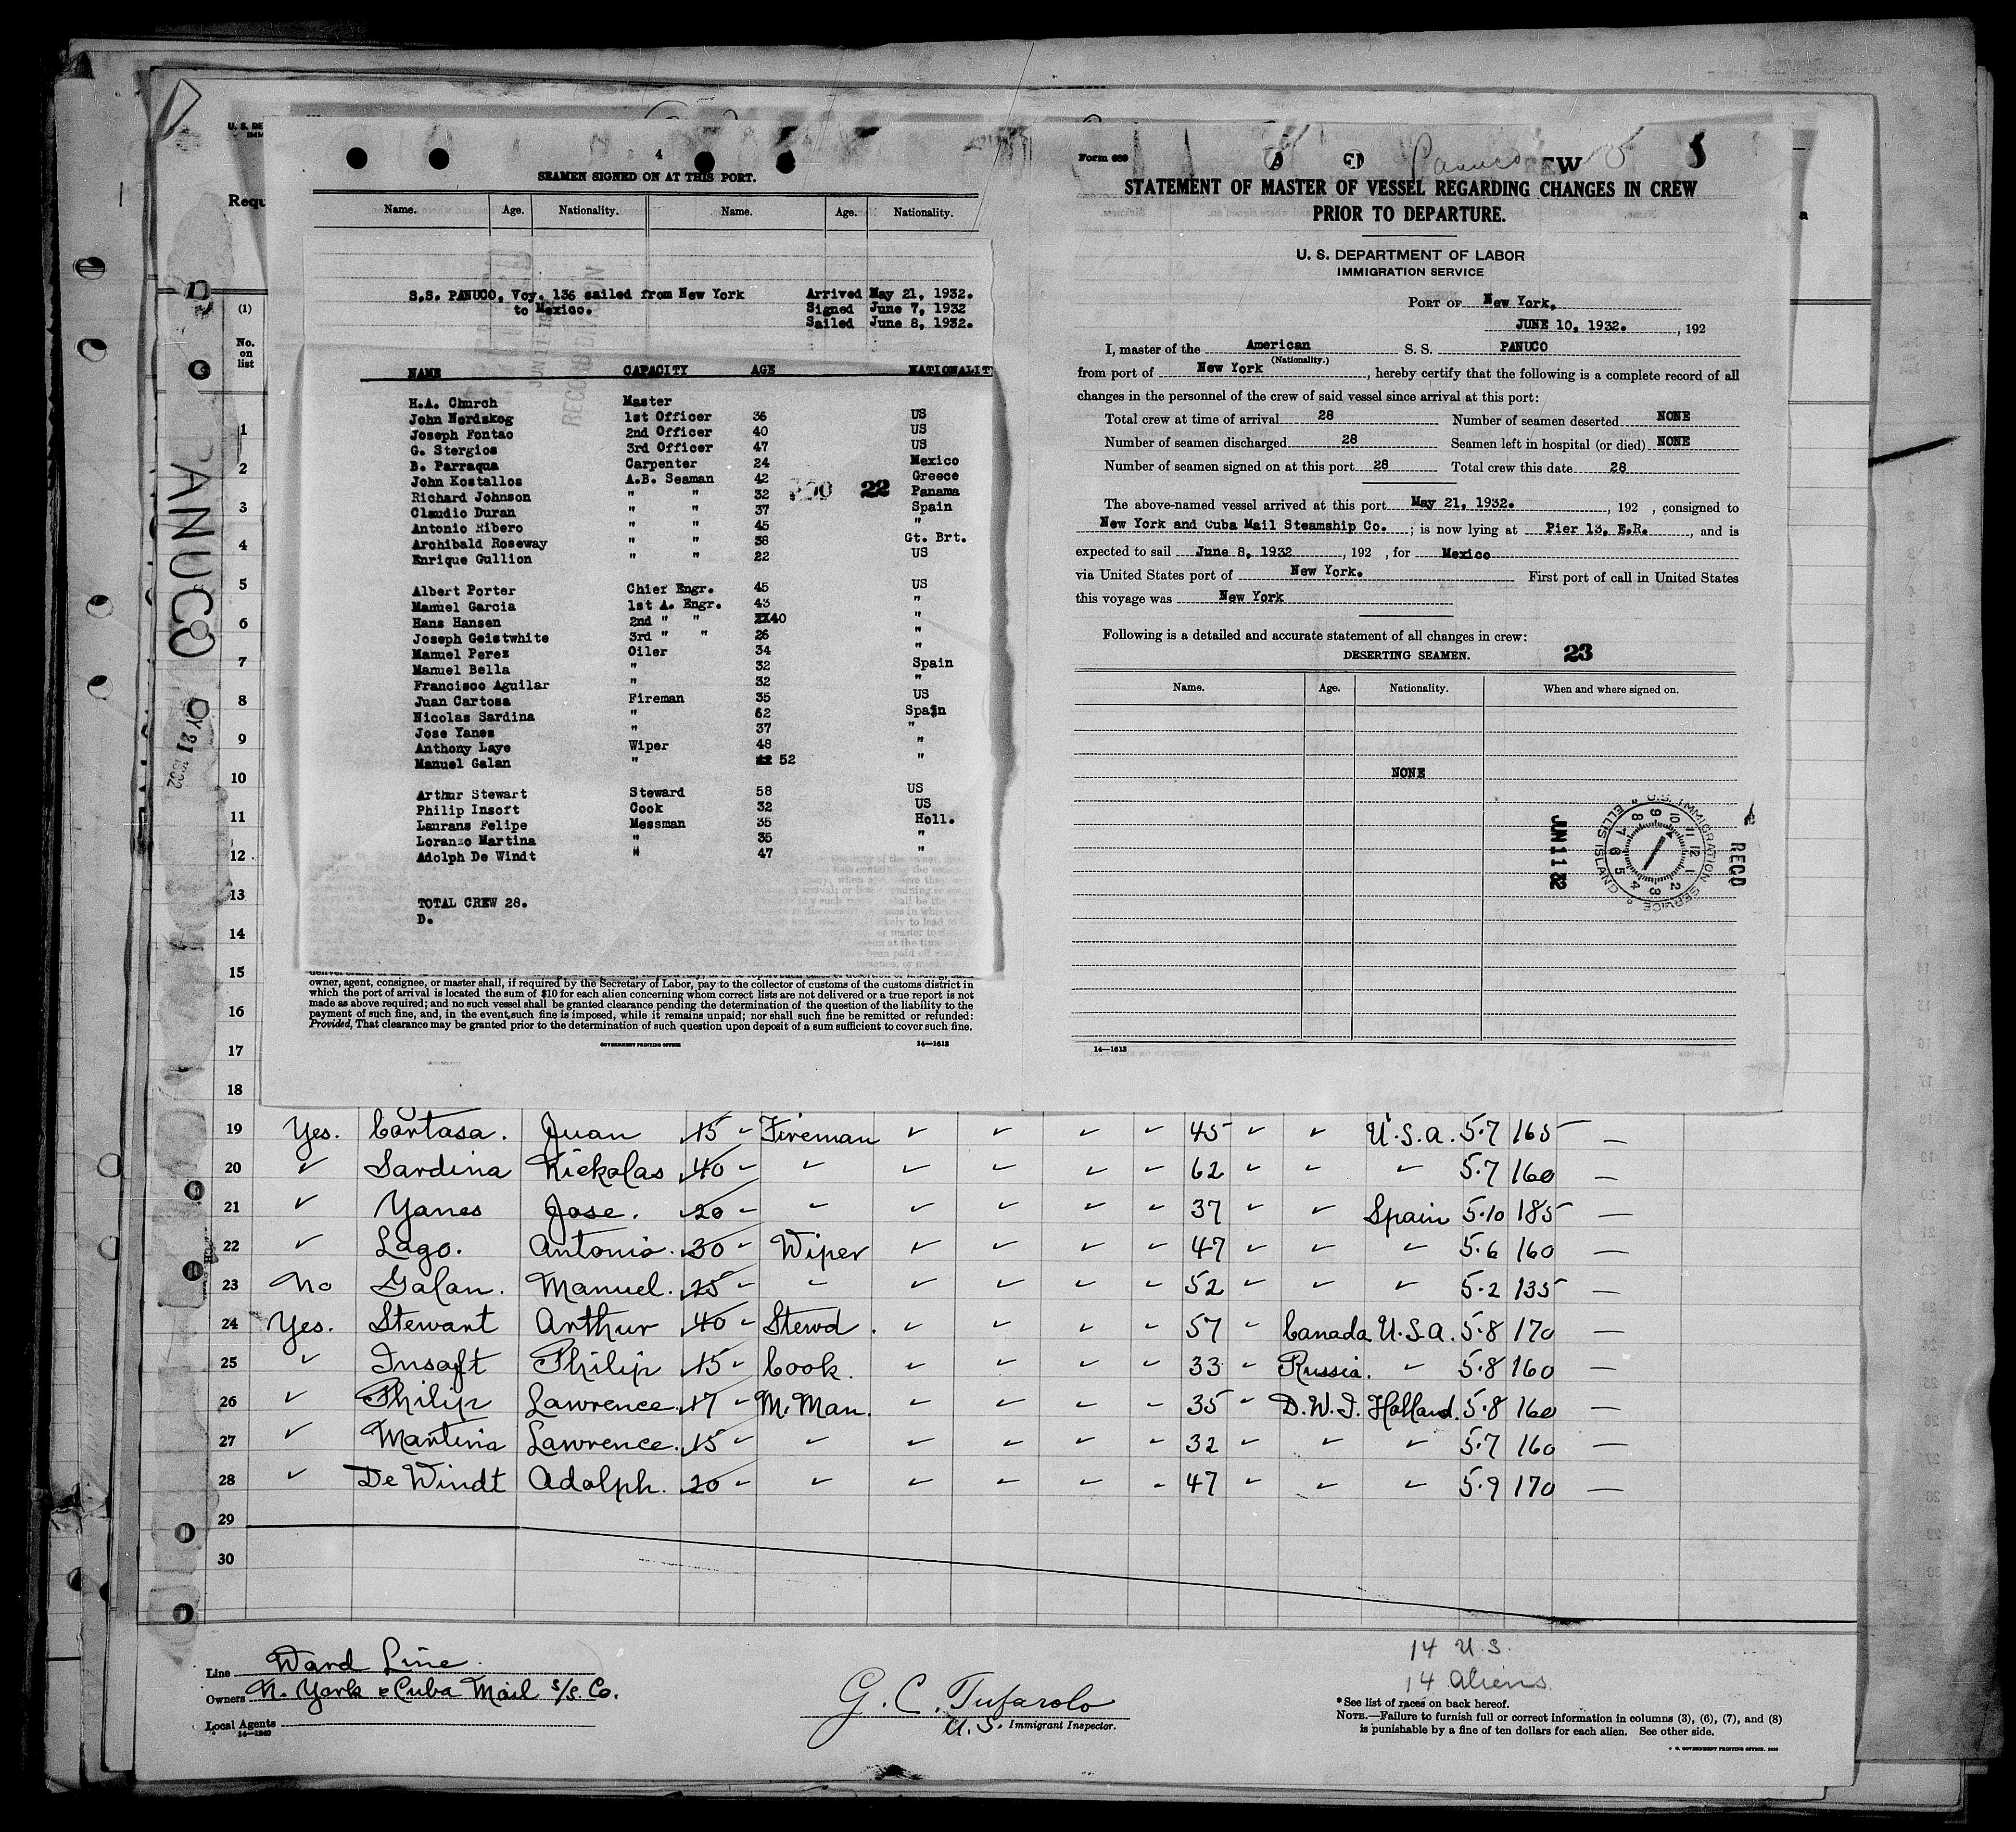 4
SEAMEN SIGNED ON AT THIS PORT.
Name. Age. Nationality. Name. Age. Nationality.
S.S. PANUCO, Voy. 136 sailed from New York Arrived May 21, 1932.
to Mexico. Signed June 7, 1932
Sailed June 8, 1932.
NAME CAPACITY AGE NATIONALIT
H.A. Church Master
John Nordskog 1st Officer 36 US
Joseph Fontao 2nd Officer 40 US
G. Stergios 3rd Officer 47 US
B. Parraqua Carpenter 24 Mexico
John Kostallos A.B. Seaman 42 Greece
Richard Johnson " " 32 22 Panama
Claudio Duran " " 37 Spain
Antonio Ribero " " 45 "
Archibald Roseway " " 38 Gt. Brt.
Enrique Gullion " " 22 US
Albert Porter Chier Engr. 45 US
Manuel Garcia 1st A. Engr. 43 "
Hans Hansen 2nd " " 40 "
Joseph Geistwhite 3rd " " 26 "
Manuel Perez Oiler 34 "
Manuel Bella " 32 Spain
Francisco Aguilar " 32 "
Juan Cartosa Fireman 35 US
Nicolas Sardina " 62 Spain
Jose Yanes " 37 "
Anthony Laye Wiper 48 "
Manuel Galan " 52 "
Arthur Stewart Steward 58 US
Philip Insoft Cook 32 US
Laurans Felipe Messman 35 Holl.
Loranzo Martina " 35 "
Adolph De Windt " 47 "
TOTAL CREW 28.
D.
owner, agent, consignee, or master shall, if required by the Secretary of Labor, pay to the collector of customs of the customs district in
which the port of arrival is located the sum of $10 for each alien concerning whom correct lists are not delivered or a true report is not
made as above required; and no such vessel shall be granted clearance pending the determination of the question of the liability to the
payment of such fine, and, in the event such fine is imposed, while it remains unpaid; nor shall such fine be remitted or refunded:
Provided, That clearance may be granted prior to the determination of such question upon deposit of a sum sufficient to cover such fine.
GOVERNMENT PRINTING OFFICE 14—1613
Form 689
Panuco
STATEMENT OF MASTER OF VESSEL REGARDING CHANGES IN CREW
PRIOR TO DEPARTURE.
U. S. DEPARTMENT OF LABOR
IMMIGRATION SERVICE
PORT OF New York.
JUNE 10, 1932. , 192
I, master of the American S. S. PANUCO
(Nationality.)
from port of New York , hereby certify that the following is a complete record of all
changes in the personnel of the crew of said vessel since arrival at this port:
Total crew at time of arrival 28 Number of seamen deserted NONE
Number of seamen discharged 28 Seamen left in hospital (or died) NONE
Number of seamen signed on at this port 28 Total crew this date 28
The above-named vessel arrived at this port May 21, 1932. , 192 , consigned to
New York and Cuba Mail Steamship Co. ; is now lying at Pier 13, E.R. , and is
expected to sail June 8, 1932 , 192 , for Mexico
via United States port of New York. First port of call in United States
this voyage was New York
Following is a detailed and accurate statement of all changes in crew:
DESERTING SEAMEN. 23
Name. Age. Nationality. When and where signed on.
NONE
JUN 11 32
U.S. IMMIGRATION SERVICE ELLIS ISLAND
RECD
14—1613
PANUCO
Requ
(1)
No. on list
1
2
3
4
5
6
7
8
9
10
11
12
13
14
15
16
17
18
19 Yes. Cortasa. Juan 15 Fireman 45 U.S.A. 5.7 165 —
20 Sardina Nickolas 40 62 5.7 160 —
21 Yanes Jose. 20 37 Spain 5.10 185 —
22 Lago. Antonio. 30 Wiper 47 5.6 160 —
23 No Galan. Manuel. 25 52 5.2 135 —
24 Yes. Stewart Arthur 40 Stewd. 57 Canada U.S.A. 5.8 170 —
25 Insoft Philip 15 Cook. 33 Russia. 5.8 160 —
26 Philip Lawrence. 17 M. Man. 35 D.W.I. Holland. 5.8 160 —
27 Martina Lawrence. 15 32 5.7 160 —
28 De Windt Adolph. 20 47 5.9 170 —
29
30
Line Ward Line.
Owners N. York & Cuba Mail S/S. Co.
Local Agents
14—1240
G. C. Tufarolo
U.S. Immigrant Inspector.
14 U.S.
14 Aliens.
* See list of races on back hereof.
NOTE.—Failure to furnish full or correct information in columns (3), (6), (7), and (8)
is punishable by a fine of ten dollars for each alien. See other side.